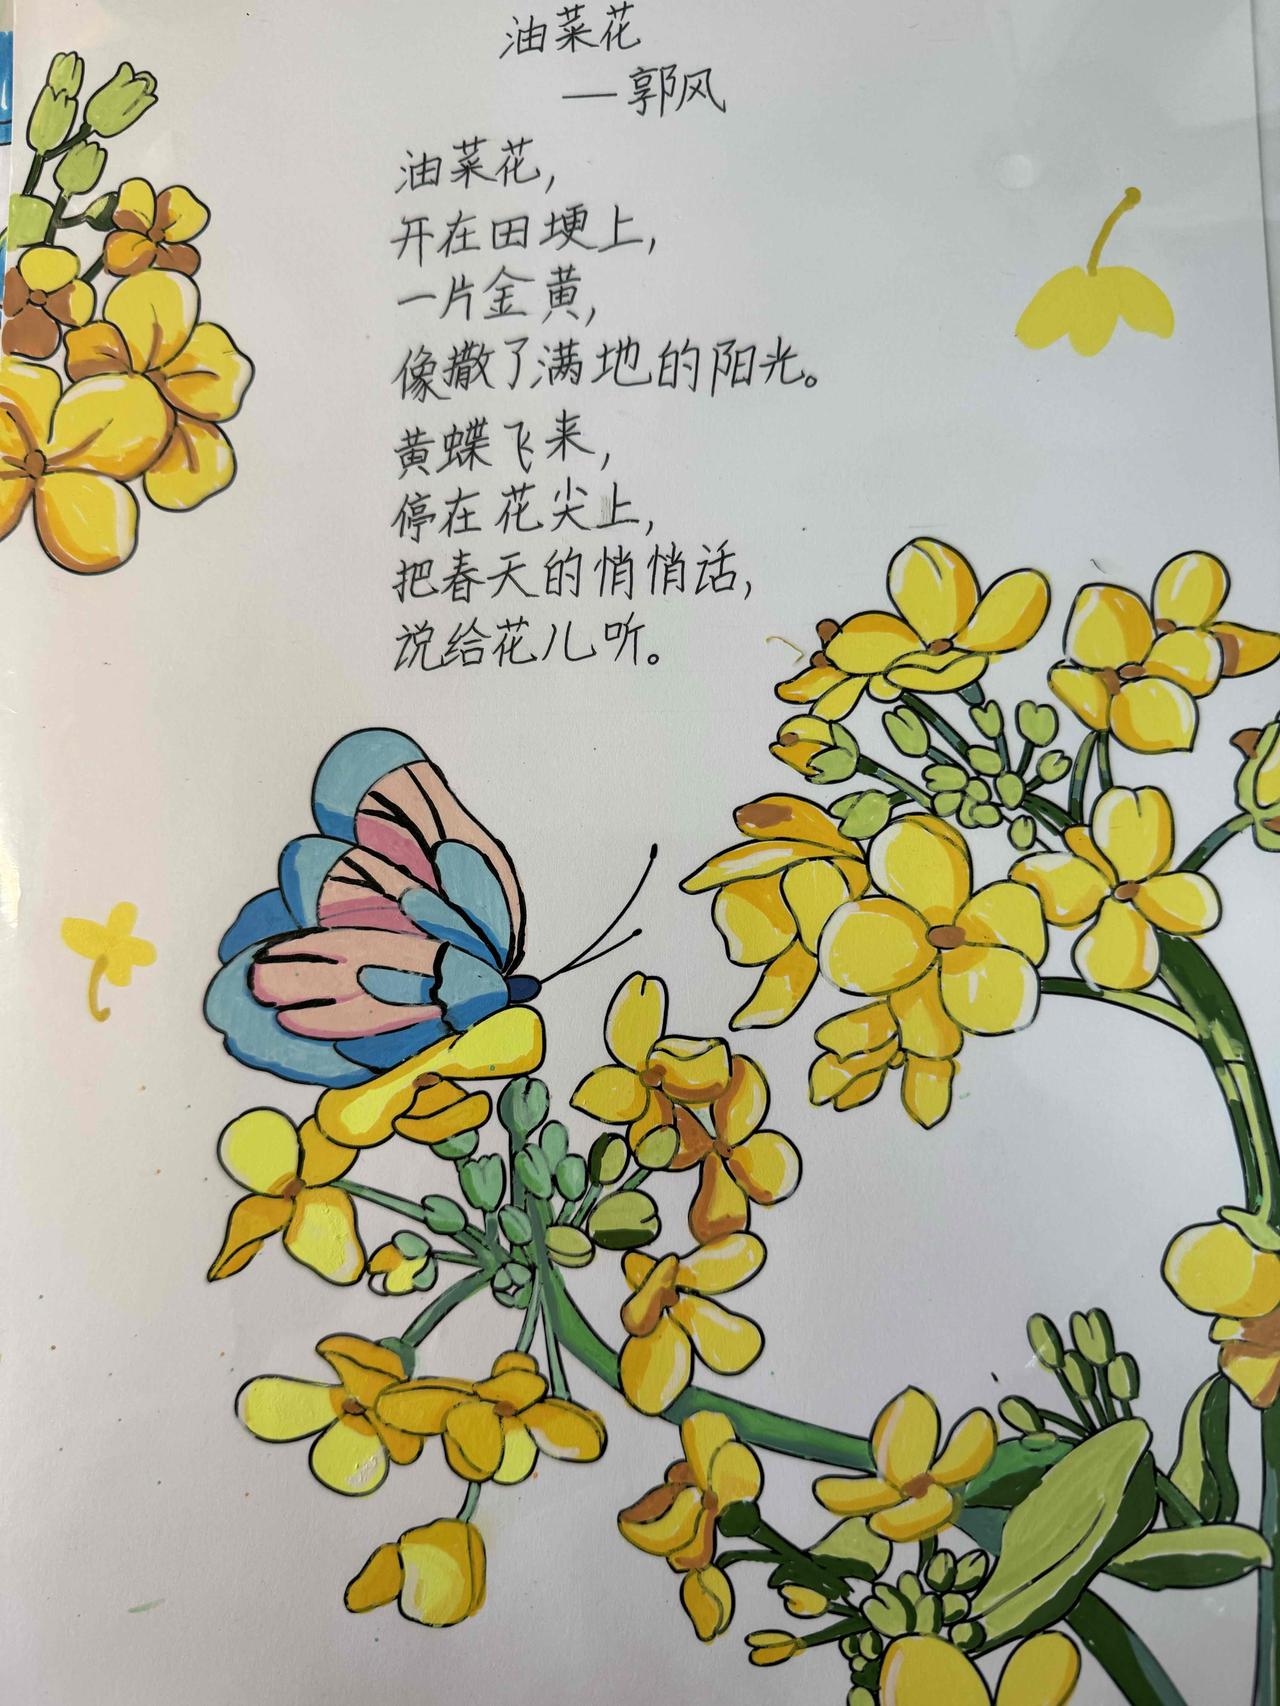 油菜花
—郭风
油菜花,
开在田埂上,
一片金黄,
像撒了满地的阳光。
黄蝶飞来,
停在花尖上,
把春天的悄悄话,
说给花儿听。